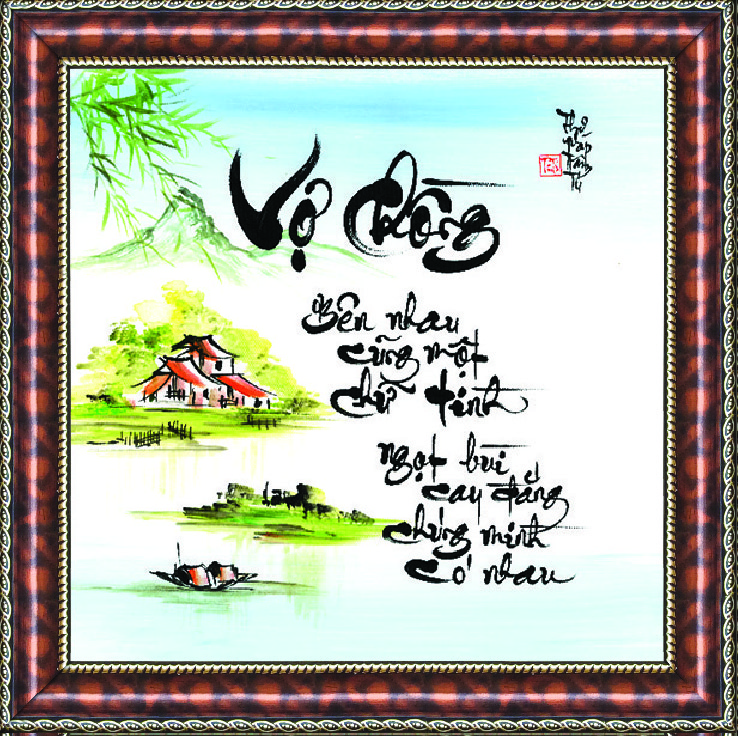 Vợ Chồng
Bên nhau
cũng một
chữ tình
ngọt bùi
cay đắng
chúng mình
có nhau
Thư
pháp